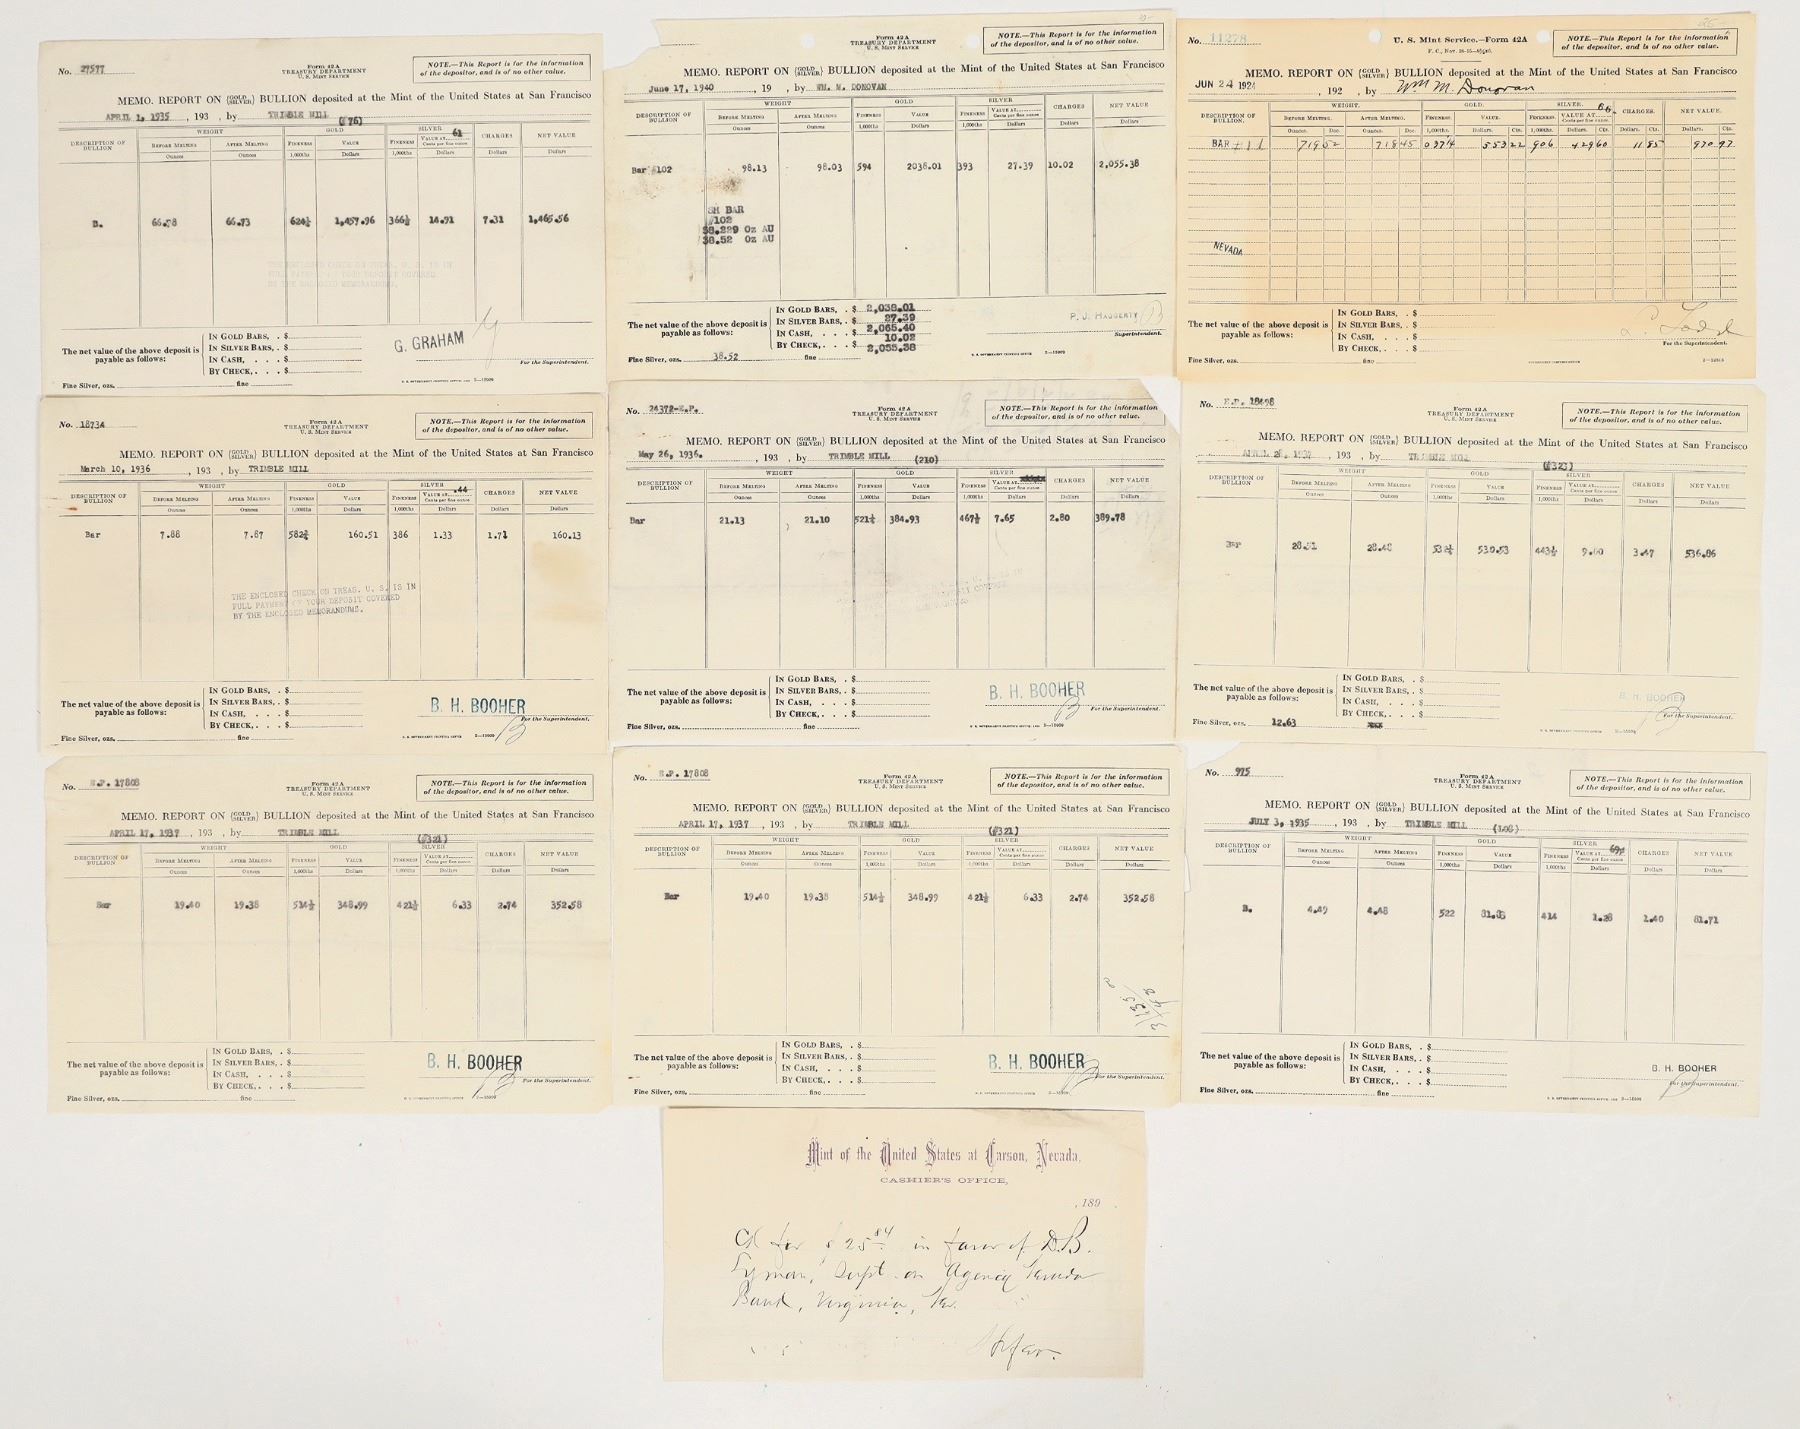 No. 27577
Form 42A
TREASURY DEPARTMENT
U. S. MINT SERVICE
NOTE.—This Report is for the information
of the depositor, and is of no other value.
MEMO. REPORT ON {GOLD SILVER} BULLION deposited at the Mint of the United States at San Francisco
APRIL 1, 1935, 193 , by TRIMBLE MILL (#76)
DESCRIPTION OF BULLION WEIGHT GOLD SILVER 61 CHARGES NET VALUE
BEFORE MELTING AFTER MELTING FINENESS VALUE FINENESS VALUE AT Cents per fine ounce
Ounces Ounces 1,000ths Dollars 1,000ths Dollars Dollars Dollars
B. 66.78 66.73 624¼ 1,457.96 366½ 14.91 7.31 1,465.56
THE ENCLOSED CHECK ON TREAS. U. S. IS IN
FULL PAYMENT OF YOUR DEPOSIT COVERED
BY THE ENCLOSED MEMORANDUMS.
The net value of the above deposit is
payable as follows:
IN GOLD BARS, . $
IN SILVER BARS, . $
IN CASH, . . . $
BY CHECK, . . . $
G. GRAHAM
For the Superintendent.
Fine Silver, ozs. fine
Form 42A
TREASURY DEPARTMENT
U. S. MINT SERVICE
NOTE.—This Report is for the information
of the depositor, and is of no other value.
MEMO. REPORT ON {GOLD SILVER} BULLION deposited at the Mint of the United States at San Francisco
June 17, 1940 , 19 , by WM. M. DONOVAN
DESCRIPTION OF BULLION WEIGHT GOLD SILVER CHARGES NET VALUE
BEFORE MELTING AFTER MELTING FINENESS VALUE FINENESS VALUE AT Cents per fine ounce
Ounces Ounces 1,000ths Dollars 1,000ths Dollars Dollars Dollars
Bar #102 98.13 98.03 594 2038.01 393 27.39 10.02 2,055.38
SH BAR
#102
58.229 Oz AU
38.52 Oz AU
The net value of the above deposit is
payable as follows:
IN GOLD BARS, . $ 2,038.01
IN SILVER BARS, . $ 27.39
IN CASH, . . . $ 2,065.40
BY CHECK, . . . $ 10.02
2,055.38
P. J. HAGGERTY
Superintendent.
Fine Silver, ozs. 38.52 fine
No. 11278
U. S. Mint Service.—Form 42A
NOTE.—This Report is for the information
of the depositor, and is of no other value.
MEMO. REPORT ON {GOLD SILVER} BULLION deposited at the Mint of the United States at San Francisco
JUN 24 1924 , 192 , by Wm M. Donovan
DESCRIPTION OF BULLION. WEIGHT. GOLD. SILVER. 66 CHARGES. NET VALUE.
BEFORE MELTING. AFTER MELTING. FINENESS. VALUE. FINENESS. VALUE AT Cents per fine ounce
Ounces. Dec. Ounces. Dec. 1,000ths. Dollars. Cts. 1,000ths. Dollars. Cts. Dollars. Cts. Dollars. Cts.
BAR #11 719 52 718 45 037¼ 553 22 906 429 60 11 85 970 97
NEVADA
The net value of the above deposit is
payable as follows:
IN GOLD BARS, . $
IN SILVER BARS, . $
IN CASH, . . . $
BY CHECK, . . . $
For the Superintendent.
Fine Silver, ozs. fine
No. 18734
Form 42A
TREASURY DEPARTMENT
U. S. MINT SERVICE
NOTE.—This Report is for the information
of the depositor, and is of no other value.
MEMO. REPORT ON {GOLD SILVER} BULLION deposited at the Mint of the United States at San Francisco
March 10, 1936 , 193 , by TRIMBLE MILL
DESCRIPTION OF BULLION WEIGHT GOLD SILVER .44 CHARGES NET VALUE
BEFORE MELTING AFTER MELTING FINENESS VALUE FINENESS VALUE AT Cents per fine ounce
Ounces Ounces 1,000ths Dollars 1,000ths Dollars Dollars Dollars
Bar 7.88 7.87 582¾ 160.51 386 1.33 1.71 160.13
THE ENCLOSED CHECK ON TREAS. U. S. IS IN
FULL PAYMENT OF YOUR DEPOSIT COVERED
BY THE ENCLOSED MEMORANDUMS.
The net value of the above deposit is
payable as follows:
IN GOLD BARS, . $
IN SILVER BARS, . $
IN CASH, . . . $
BY CHECK, . . . $
B. H. BOOHER
For the Superintendent.
Fine Silver, ozs. fine
No. 24372-E.P.
Form 42A
TREASURY DEPARTMENT
U. S. MINT SERVICE
NOTE.—This Report is for the information
of the depositor, and is of no other value.
MEMO. REPORT ON {GOLD SILVER} BULLION deposited at the Mint of the United States at San Francisco
May 26, 1936. , 193 , by TRIMBLE MILL (210)
DESCRIPTION OF BULLION WEIGHT GOLD SILVER CHARGES NET VALUE
BEFORE MELTING AFTER MELTING FINENESS VALUE FINENESS VALUE AT Cents per fine ounce
Ounces Ounces 1,000ths Dollars 1,000ths Dollars Dollars Dollars
Bar 21.13 21.10 521¼ 384.93 467½ 7.65 2.80 389.78
The net value of the above deposit is
payable as follows:
IN GOLD BARS, . $
IN SILVER BARS, . $
IN CASH, . . . $
BY CHECK, . . . $
B. H. BOOHER
For the Superintendent.
Fine Silver, ozs. fine
No. E.P. 18498
Form 42A
TREASURY DEPARTMENT
U. S. MINT SERVICE
NOTE.—This Report is for the information
of the depositor, and is of no other value.
MEMO. REPORT ON {GOLD SILVER} BULLION deposited at the Mint of the United States at San Francisco
APRIL 28, 1937 , 193 , by TRIMBLE MILL (#323)
DESCRIPTION OF BULLION WEIGHT GOLD SILVER CHARGES NET VALUE
BEFORE MELTING AFTER MELTING FINENESS VALUE FINENESS VALUE AT Cents per fine ounce
Ounces Ounces 1,000ths Dollars 1,000ths Dollars Dollars Dollars
Bar 28.51 28.48 532¼ 530.53 443½ 9.80 3.47 536.86
The net value of the above deposit is
payable as follows:
IN GOLD BARS, . $
IN SILVER BARS, . $
IN CASH, . . . $
BY CHECK, . . . $
B. H. BOOHER
For the Superintendent.
Fine Silver, ozs. 12.63
No. E.P. 17808
Form 42A
TREASURY DEPARTMENT
U. S. MINT SERVICE
NOTE.—This Report is for the information
of the depositor, and is of no other value.
MEMO. REPORT ON {GOLD SILVER} BULLION deposited at the Mint of the United States at San Francisco
APRIL 17, 1937 , 193 , by TRIMBLE MILL (#321)
DESCRIPTION OF BULLION WEIGHT GOLD SILVER CHARGES NET VALUE
BEFORE MELTING AFTER MELTING FINENESS VALUE FINENESS VALUE AT Cents per fine ounce
Ounces Ounces 1,000ths Dollars 1,000ths Dollars Dollars Dollars
Bar 19.40 19.38 514½ 348.99 421½ 6.33 2.74 352.58
The net value of the above deposit is
payable as follows:
IN GOLD BARS, . $
IN SILVER BARS, . $
IN CASH, . . . $
BY CHECK, . . . $
B. H. BOOHER
For the Superintendent.
Fine Silver, ozs. fine
No. E.P. 17808
Form 42A
TREASURY DEPARTMENT
U. S. MINT SERVICE
NOTE.—This Report is for the information
of the depositor, and is of no other value.
MEMO. REPORT ON {GOLD SILVER} BULLION deposited at the Mint of the United States at San Francisco
APRIL 17, 1937 , 193 , by TRIMBLE MILL (#321)
DESCRIPTION OF BULLION WEIGHT GOLD SILVER CHARGES NET VALUE
BEFORE MELTING AFTER MELTING FINENESS VALUE FINENESS VALUE AT Cents per fine ounce
Ounces Ounces 1,000ths Dollars 1,000ths Dollars Dollars Dollars
Bar 19.40 19.38 514½ 348.99 421½ 6.33 2.74 352.58
The net value of the above deposit is
payable as follows:
IN GOLD BARS, . $
IN SILVER BARS, . $
IN CASH, . . . $
BY CHECK, . . . $
B. H. BOOHER
For the Superintendent.
Fine Silver, ozs. fine
No. 975
Form 42A
TREASURY DEPARTMENT
U. S. MINT SERVICE
NOTE.—This Report is for the information
of the depositor, and is of no other value.
MEMO. REPORT ON {GOLD SILVER} BULLION deposited at the Mint of the United States at San Francisco
JULY 3, 1935 , 193 , by TRIMBLE MILL
DESCRIPTION OF BULLION WEIGHT GOLD SILVER CHARGES NET VALUE
BEFORE MELTING AFTER MELTING FINENESS VALUE FINENESS VALUE AT Cents per fine ounce
Ounces Ounces 1,000ths Dollars 1,000ths Dollars Dollars Dollars
B. 4.49 4.48 522 81.83 414 1.28 1.40 81.71
The net value of the above deposit is
payable as follows:
IN GOLD BARS, . $
IN SILVER BARS, . $
IN CASH, . . . $
BY CHECK, . . . $
B. H. BOOHER
For the Superintendent.
Fine Silver, ozs. fine
Mint of the United States at Carson, Nevada,
CASHIER'S OFFICE,
, 189
Ck for $25 84 in favor of D. B.
Lyman, Supt. on Agency Nevada
Bank, Virginia, Nev.